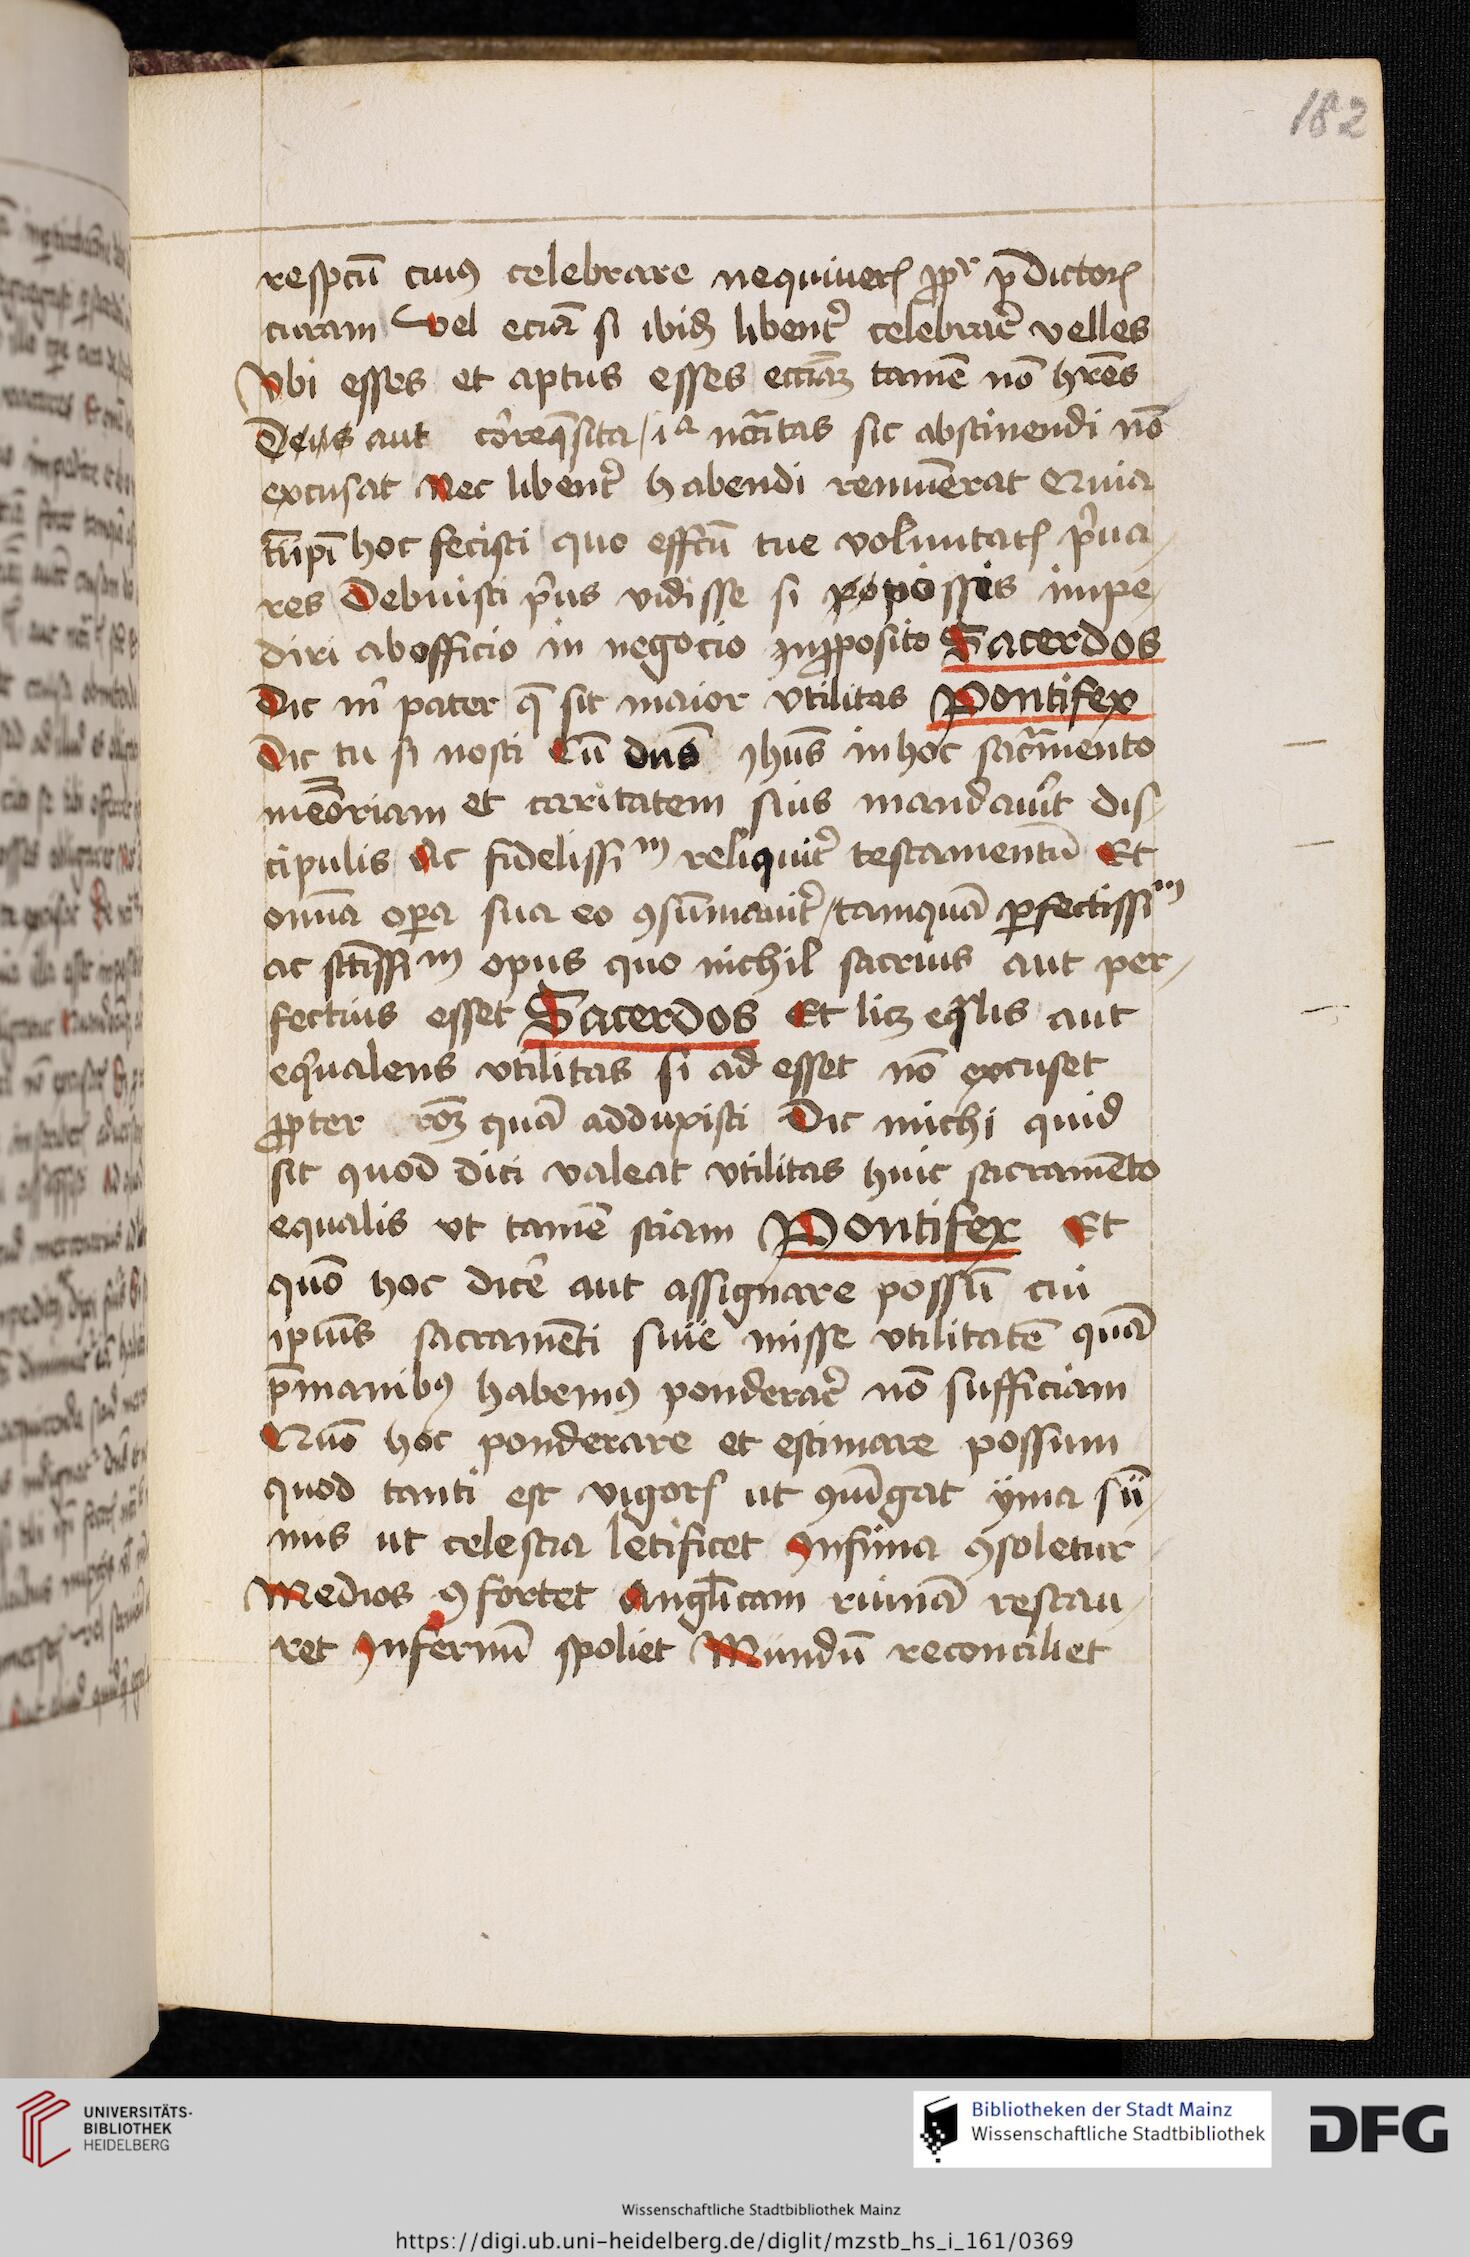 182
respcū cuiꝯ celebrare nequiuerꝭ ꝓpr p̄dictorꝭ
curam vel eciā si ibid libentˀ celebrarˀ velles
Vbi esses et aptus esses tamē nō hrēs
aut sic abstinendi nō
excusat Nec libentˀ habendi Quia
hoc fecisti quo effcū tue voluntatꝭ pˀua/
res Debuisti pˀus vidisse si impe/
diri ab officio in negocio inꝓposito Sacerdos
Dic mˀ pater q̄ sit maior vtilitas Pontifex
Dic tu si nosti Cū dns̄ Jhūs in hoc sacᵃmento
meōriam et caritatem suis mandauˀit dis/
cipulis Ac fidelissiᵐ reliquitˀ testamentū Et
omīa oꝑa sua eo ꝯsūmauitˀ/tamquā ꝑfectissiᵐ
ac sctīssiᵐ opus quo nichil sacrius aut per/
fectius esset Sacerdos Et licꝫ eqᵃlis aut
eqˀualens vtilitas si ad esset nō excuset
ꝓpter rōꝫ quā adduxisti Dic michi quid
sit quod dici valeat vtilitas huic sacramēto
equalis vt tamē sciam Pontifex Et
quō hoc dicēˀ aut assignare possū cui
ipius̄ sacramēti siue misse vtilitatē quā
p̄manibꝯ habemꝯ ponderarˀ nō sufficiam
Quō hoc ponderare et estimare possum
quod tanti est vigorꝭ ut ꝯiūgat yma sū/
mis ut celestia letificet Infima ꝯsoletur
Medios ꝯfortet Anglīcam ruinā restau/
ret Infernū spoliet Mundū reconciliet
UNIVERSITÄTS-
BIBLIOTHEK
HEIDELBERG
Bibliotheken der Stadt Mainz
Wissenschaftliche Stadtbibliothek
DFG
Wissenschaftliche Stadtbibliothek Mainz
https://digi.ub.uni-heidelberg.de/diglit/mzstb_hs_i_161/0369